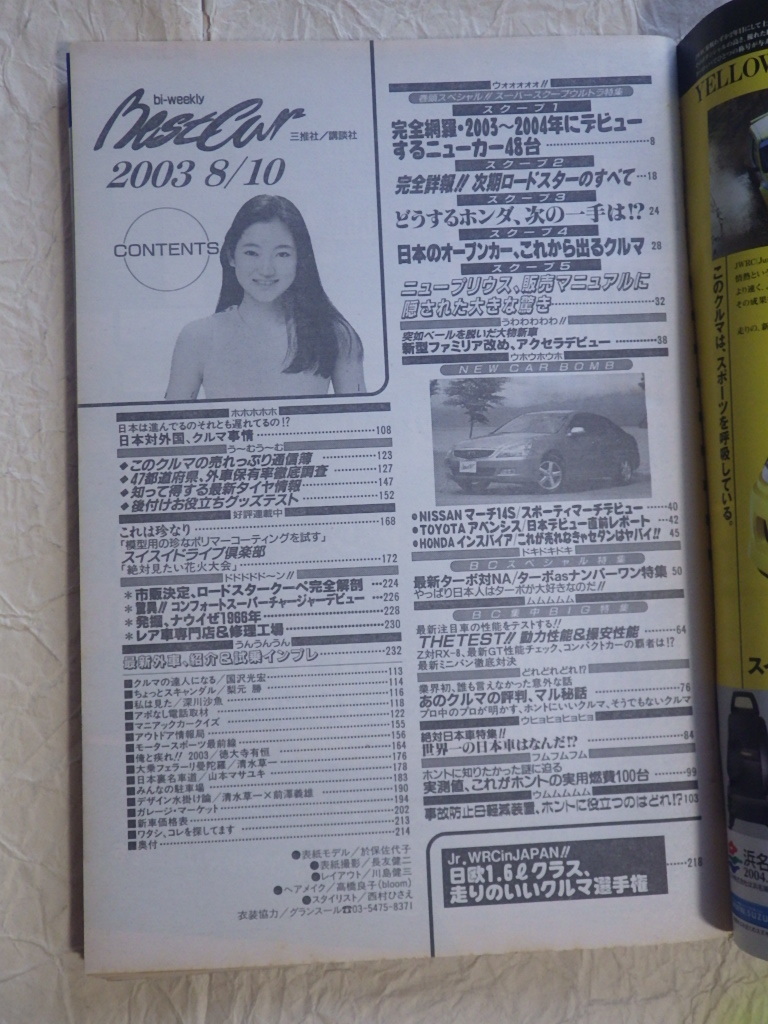 bi-weekly
Best Car
三推社／講談社
2003 8/10
CONTENTS
ホホホホホ
日本は進んでるのそれとも遅れてるの!?
日本対外国、クルマ事情 108
う〜むう〜む
◆このクルマの売れっぷり通信簿 123
◆47都道府県、外車保有率徹底調査 127
◆知って得する最新タイヤ情報 147
◆後付けお役立ちグッズテスト 152
好評連載中
これは珍なり 168
「模型用の珍なポリマーコーティングを試す」
スイスイドライブ倶楽部
「絶対見たい花火大会」 172
ドドドドド〜ン!!
＊市販決定、ロードスタークーペ完全解剖 224
＊驚異!! コンフォートスーパーチャージャーデビュー 226
＊発掘、ナウイぜ1966年 228
＊レア車専門店&修理工場 230
うんうんうん
最新外車、紹介&試乗インプレ 232
■クルマの達人になる／国沢光宏 113
■ちょっとスキャンダル／梨元 勝 114
■私は見た／深川沙魚 116
■アポなし電話取材 118
■マニアックカークイズ 122
■アウトドア情報局 155
■モータースポーツ最前線 156
■俺と疾れ!! 2003／徳大寺有恒 164
■大乗フェラーリ曼陀羅／清水草一 176
■日本裏名車道／山本マサユキ 178
■みんなの駐車場 183
■デザイン水掛け論／清水草一×前澤義雄 190
■ガレージ・マーケット 194
■新車価格表 202
■ワタシ、コレを探してます 213
■奥付 214
●表紙モデル／於保佐代子
●表紙撮影／長友健二
●レイアウト／川島健三
●ヘアメイク／高橋良子(bloom)
●スタイリスト／西村ひさえ
衣装協力／グランスール☎03-5475-8371
ウオォォォォ!!
巻頭スペシャル!! スーパースクープウルトラ特集
スクープ1
完全網羅・2003〜2004年にデビュー
するニューカー48台 8
スクープ2
完全詳報!! 次期ロードスターのすべて 18
スクープ3
どうするホンダ、次の一手は!? 24
スクープ4
日本のオープンカー、これから出るクルマ 28
スクープ5
ニュープリウス、販売マニュアルに
隠された大きな驚き 32
うわわわわわ!!
突如ベールを脱いだ大物新車
新型ファミリア改め、アクセラデビュー 38
ウホウホウホ
NEW CAR BOMB
●NISSAN マーチ14S／スポーティマーチデビュー 40
●TOYOTA アベンシス／日本デビュー直前レポート 42
●HONDA インスパイア／これが売れなきゃセダンはヤバイ!! 45
ドキドキドキ
BCスペシャル特集
最新ターボ対NA／ターボasナンバーワン特集 50
やっぱり日本人はターボが大好きなのだ!!
ムムムムム
BC集中BIG特集
最新注目車の性能をテストする!!
THE TEST!! 動力性能&操安性能 64
Z対RX-8、最新GT性能チェック、コンパクトカーの覇者は!?
最新ミニバン徹底対決
どれどれどれ!?
業界初、誰も言えなかった意外な話
あのクルマの評判、マル秘話 76
プロ中のプロが明かす、ホントにいいクルマ、そうでもないクルマ
ウヒョヒョヒョヒョ
絶対日本車特集!!
世界一の日本車はなんだ!? 84
フムフムフム
ホントに知りたかった謎に迫る
実測値、これがホントの実用燃費100台 99
ウムムムム
事故防止&軽減装置、ホントに役立つのはどれ!? 103
Jr. WRC in JAPAN!!
日欧1.6ℓクラス、
走りのいいクルマ選手権 218
YELLOW
このクルマは、スポーツを呼吸している。